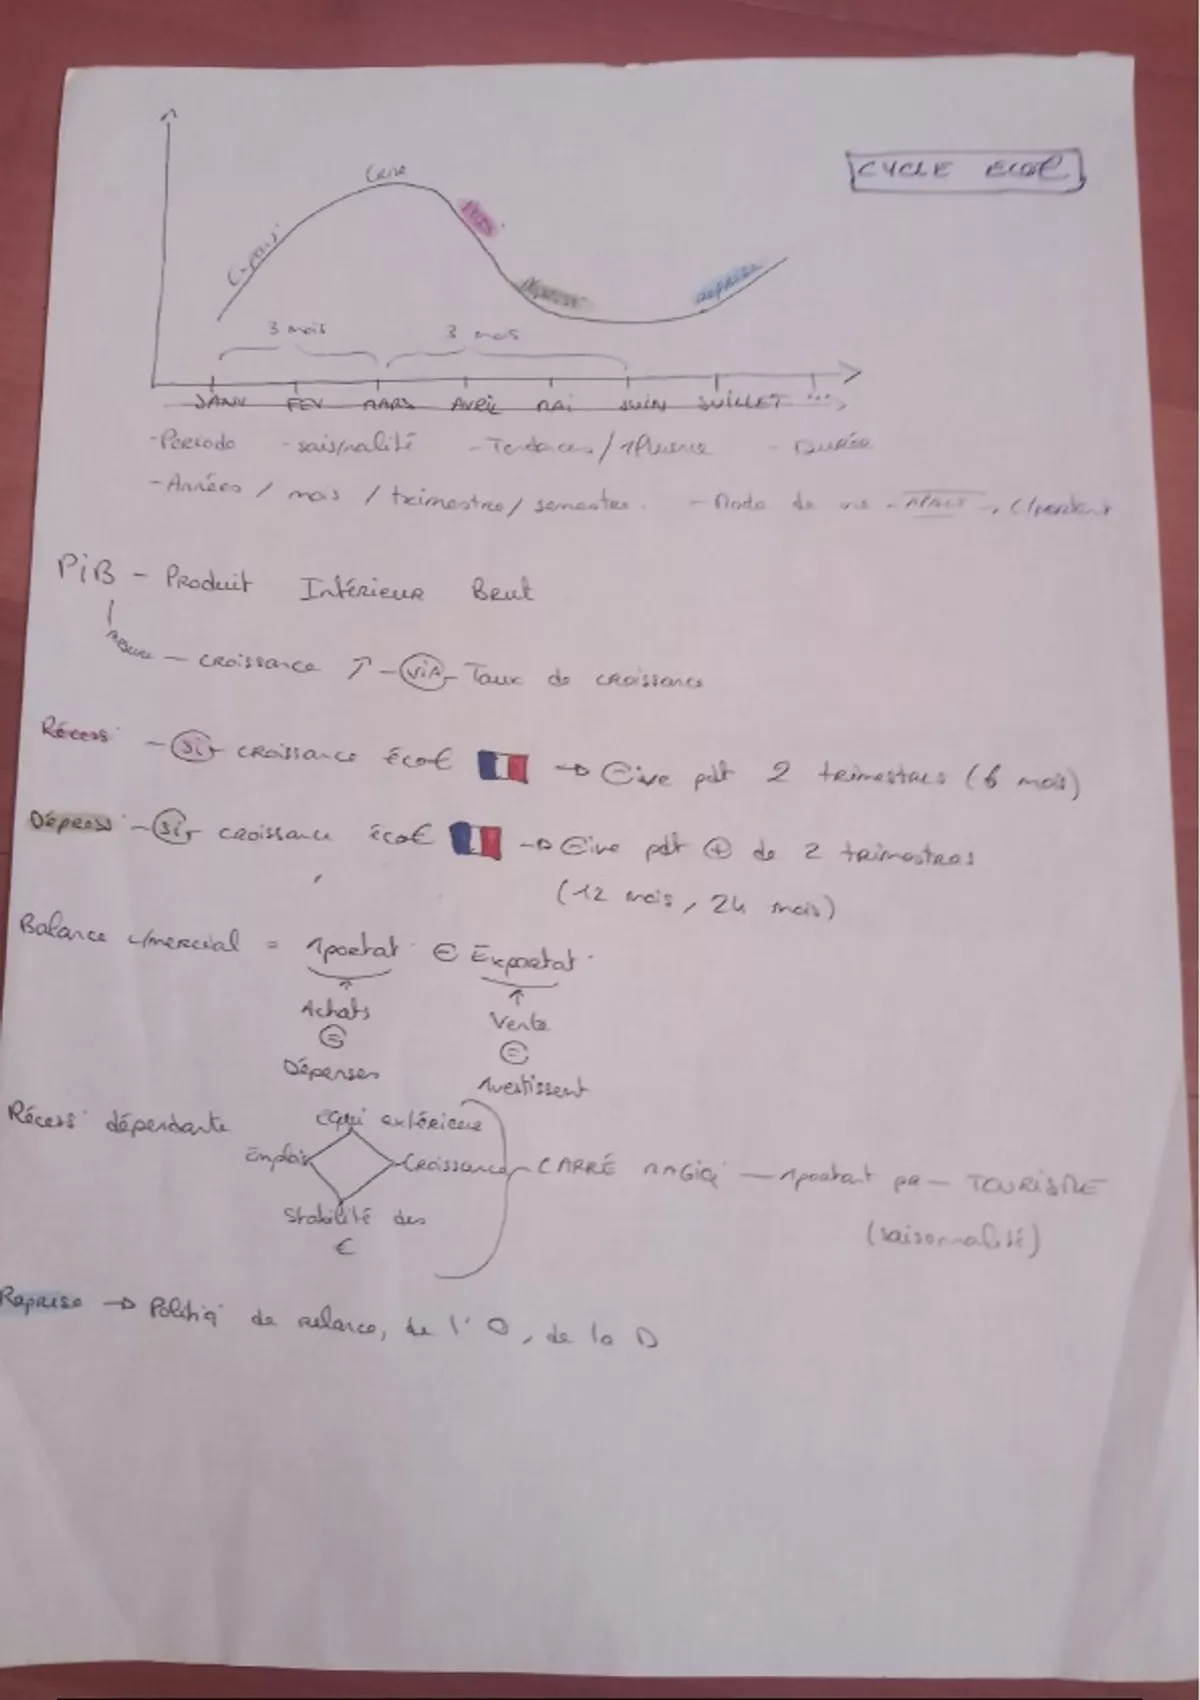 CYCLE ÉCO€
Crise
Expans°
Récess°
Dépress°
reprise
3 mois 3 mois
JANV FEV MARS AVRIL MAI JUIN JUILLET ...
- Période - sais/nalité - Tendances / 1fluence - Durée
- Années / mois / trimestre / semestre. - Mode de vie - , C/portent
PiB - Produit Intérieur Brut
mesure - croissance ↑ - ViA - Taux de croissance
Récess° - Si - croissance éco€ → ⊖ive pdt 2 trimestres (6 mois)
Dépress° - Si - croissance éco€ → ⊖ive pdt ⊕ de 2 trimestres
(12 mois, 24 mois)
Balance c/mercial = 1portat° ⊖ Exportat°
↑ ↑
Achats Vente
= =
Dépenses 1vestissent
Récess° dépendante équi extérieure
Emploi Croissance - CARRÉ MAGIQ - 1portant pr - TOURISME
Stabilité des (saisonnalité)
€
Reprise → Politiq de relance, de l'O, de la D